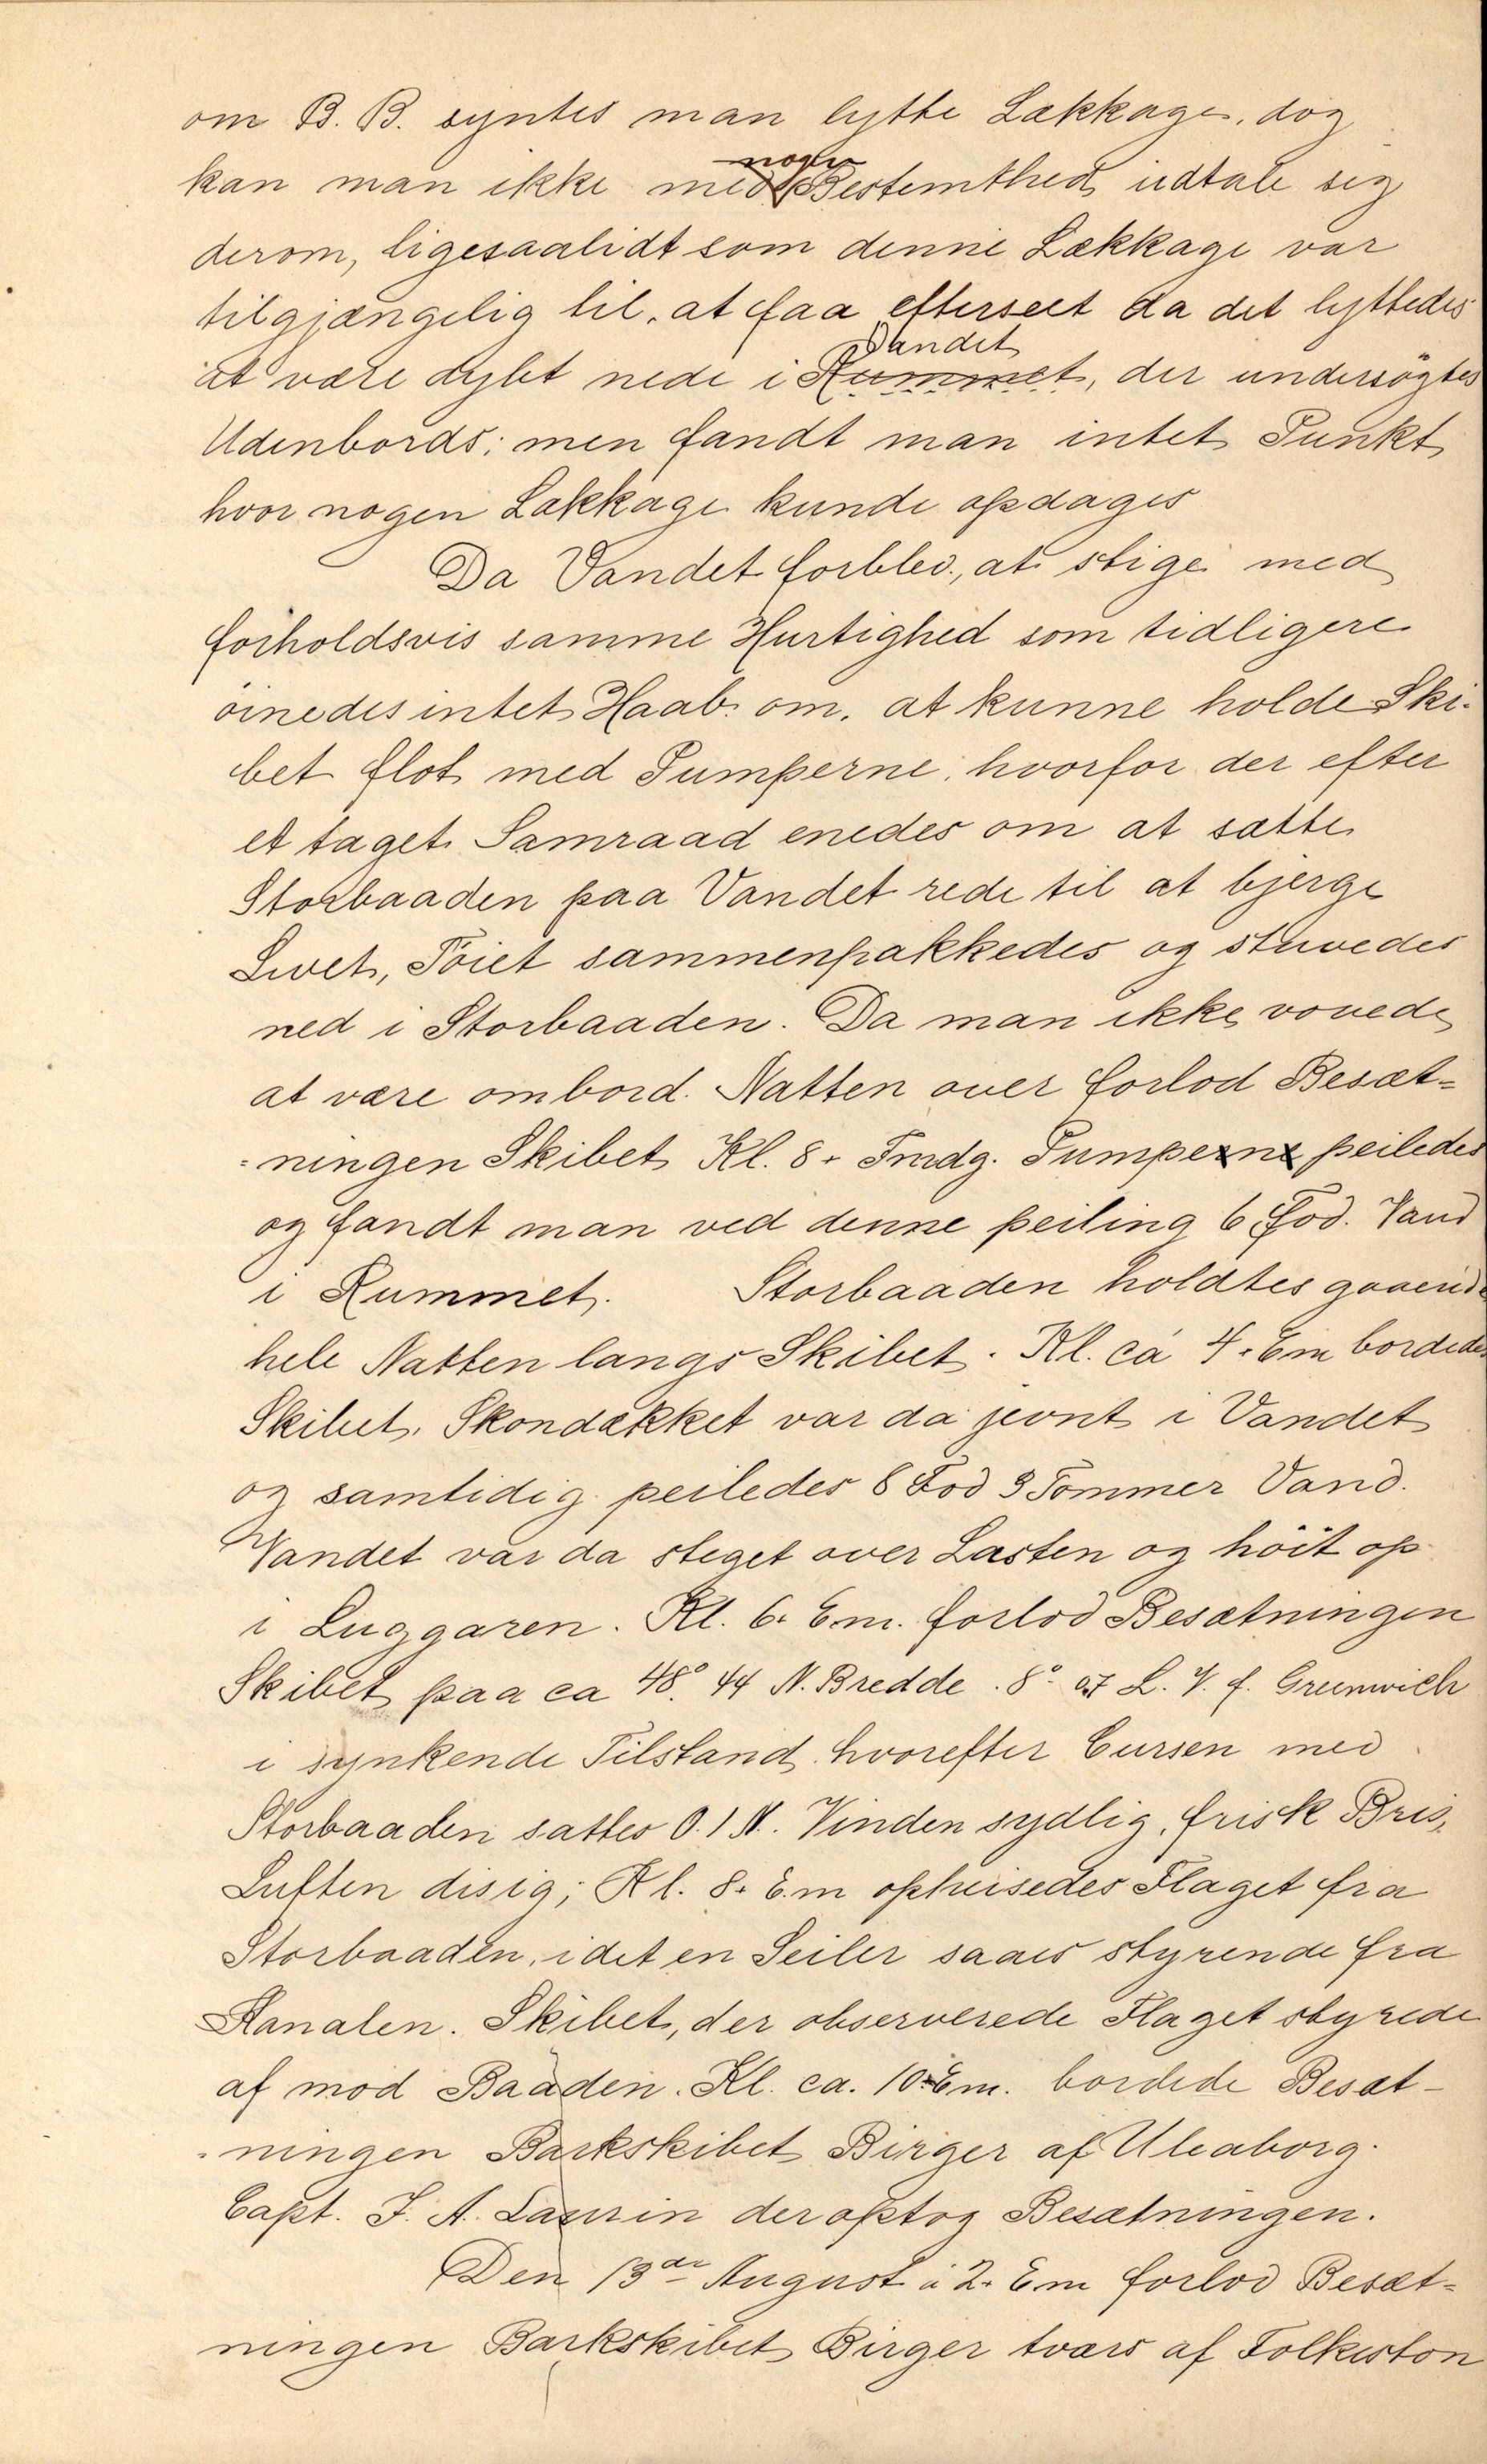 om B. B. syntes man lytte Lækkage, dog
kan man ikke med nogen Bestemthed udtale sig
derom, ligesaalidt som denne Lækkage var
tilgjængelig til, at faa efterseet da det lyttedes
at være dybt nede i Rummet Vandet, der undersögtes
Udenbords; men fandt man intet Punkt
hvor nogen Lækkage kunde opdages
Da Vandet forblev, at stige med
forholdsvis samme Hurtighed som tidligere
öinedes intet Haab om, at kunne holde Ski-
bet flot med Pumperne; hvorfor der efter
et taget Samraad enedes om at sætte
Storbaaden paa Vandet rede til at bjerge
Livet, Töiet sammenpakkedes og stuvedes
ned i Storbaaden. Da man ikke vovede
at være ombord Natten over forlod Besæt=
=ningen Skibet Kl. 8. Fmdg. Pumperne peiledes
og fandt man ved denne peiling 6 Fod. Vand
i Rummet. Storbaaden holdtes gaaende
hele Natten langs Skibet. Kl. ca 4. Em bordedes
Skibet, Skandækket var da jevnt i Vandet
og samtidig peiledes 8 Fod 3 Tommer Vand.
Vandet var da steget over Lasten og höit op
i Luggaren. Kl. 6. Em. forlod Besætningen
Skibet paa ca 48° 44 N. Bredde. 8° 07 L. V. f. Greenwich
i synkende Tilstand hvorefter Cursen med
Storbaaden sattes O. / N. Vinden sydlig, frisk Bris,
Luften disig; Kl. 8. E.m opheisedes Flaget fra
Storbaaden, idet en Seiler saaes styrende fra
Kanalen. Skibet, der observerede Flaget styrede
af mod Baaden. Kl. ca. 10 Em. bordede Besæt-
ningen Barkskibet Birger af Uleaborg.
Capt. J. A. Laurin der optog Besætningen.
Den 13de August á 2. Em forlod Besæt=
ningen Barkskibet Birger tværs af Folkeston